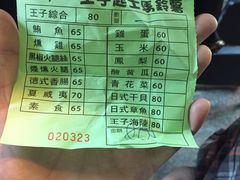 王子起士馬鈴薯
王子綜合 80
鮪魚 65
燻雞 65
黑椒火腿絲 65
燻燻火腿 65
德式香腸 65
夏威夷 70
素食 65
雞蛋 60
玉米 60
鳳梨 60
酸黃瓜 60
青花菜 60
日式干貝 80
日式章魚 80
王子海陸 80
020323